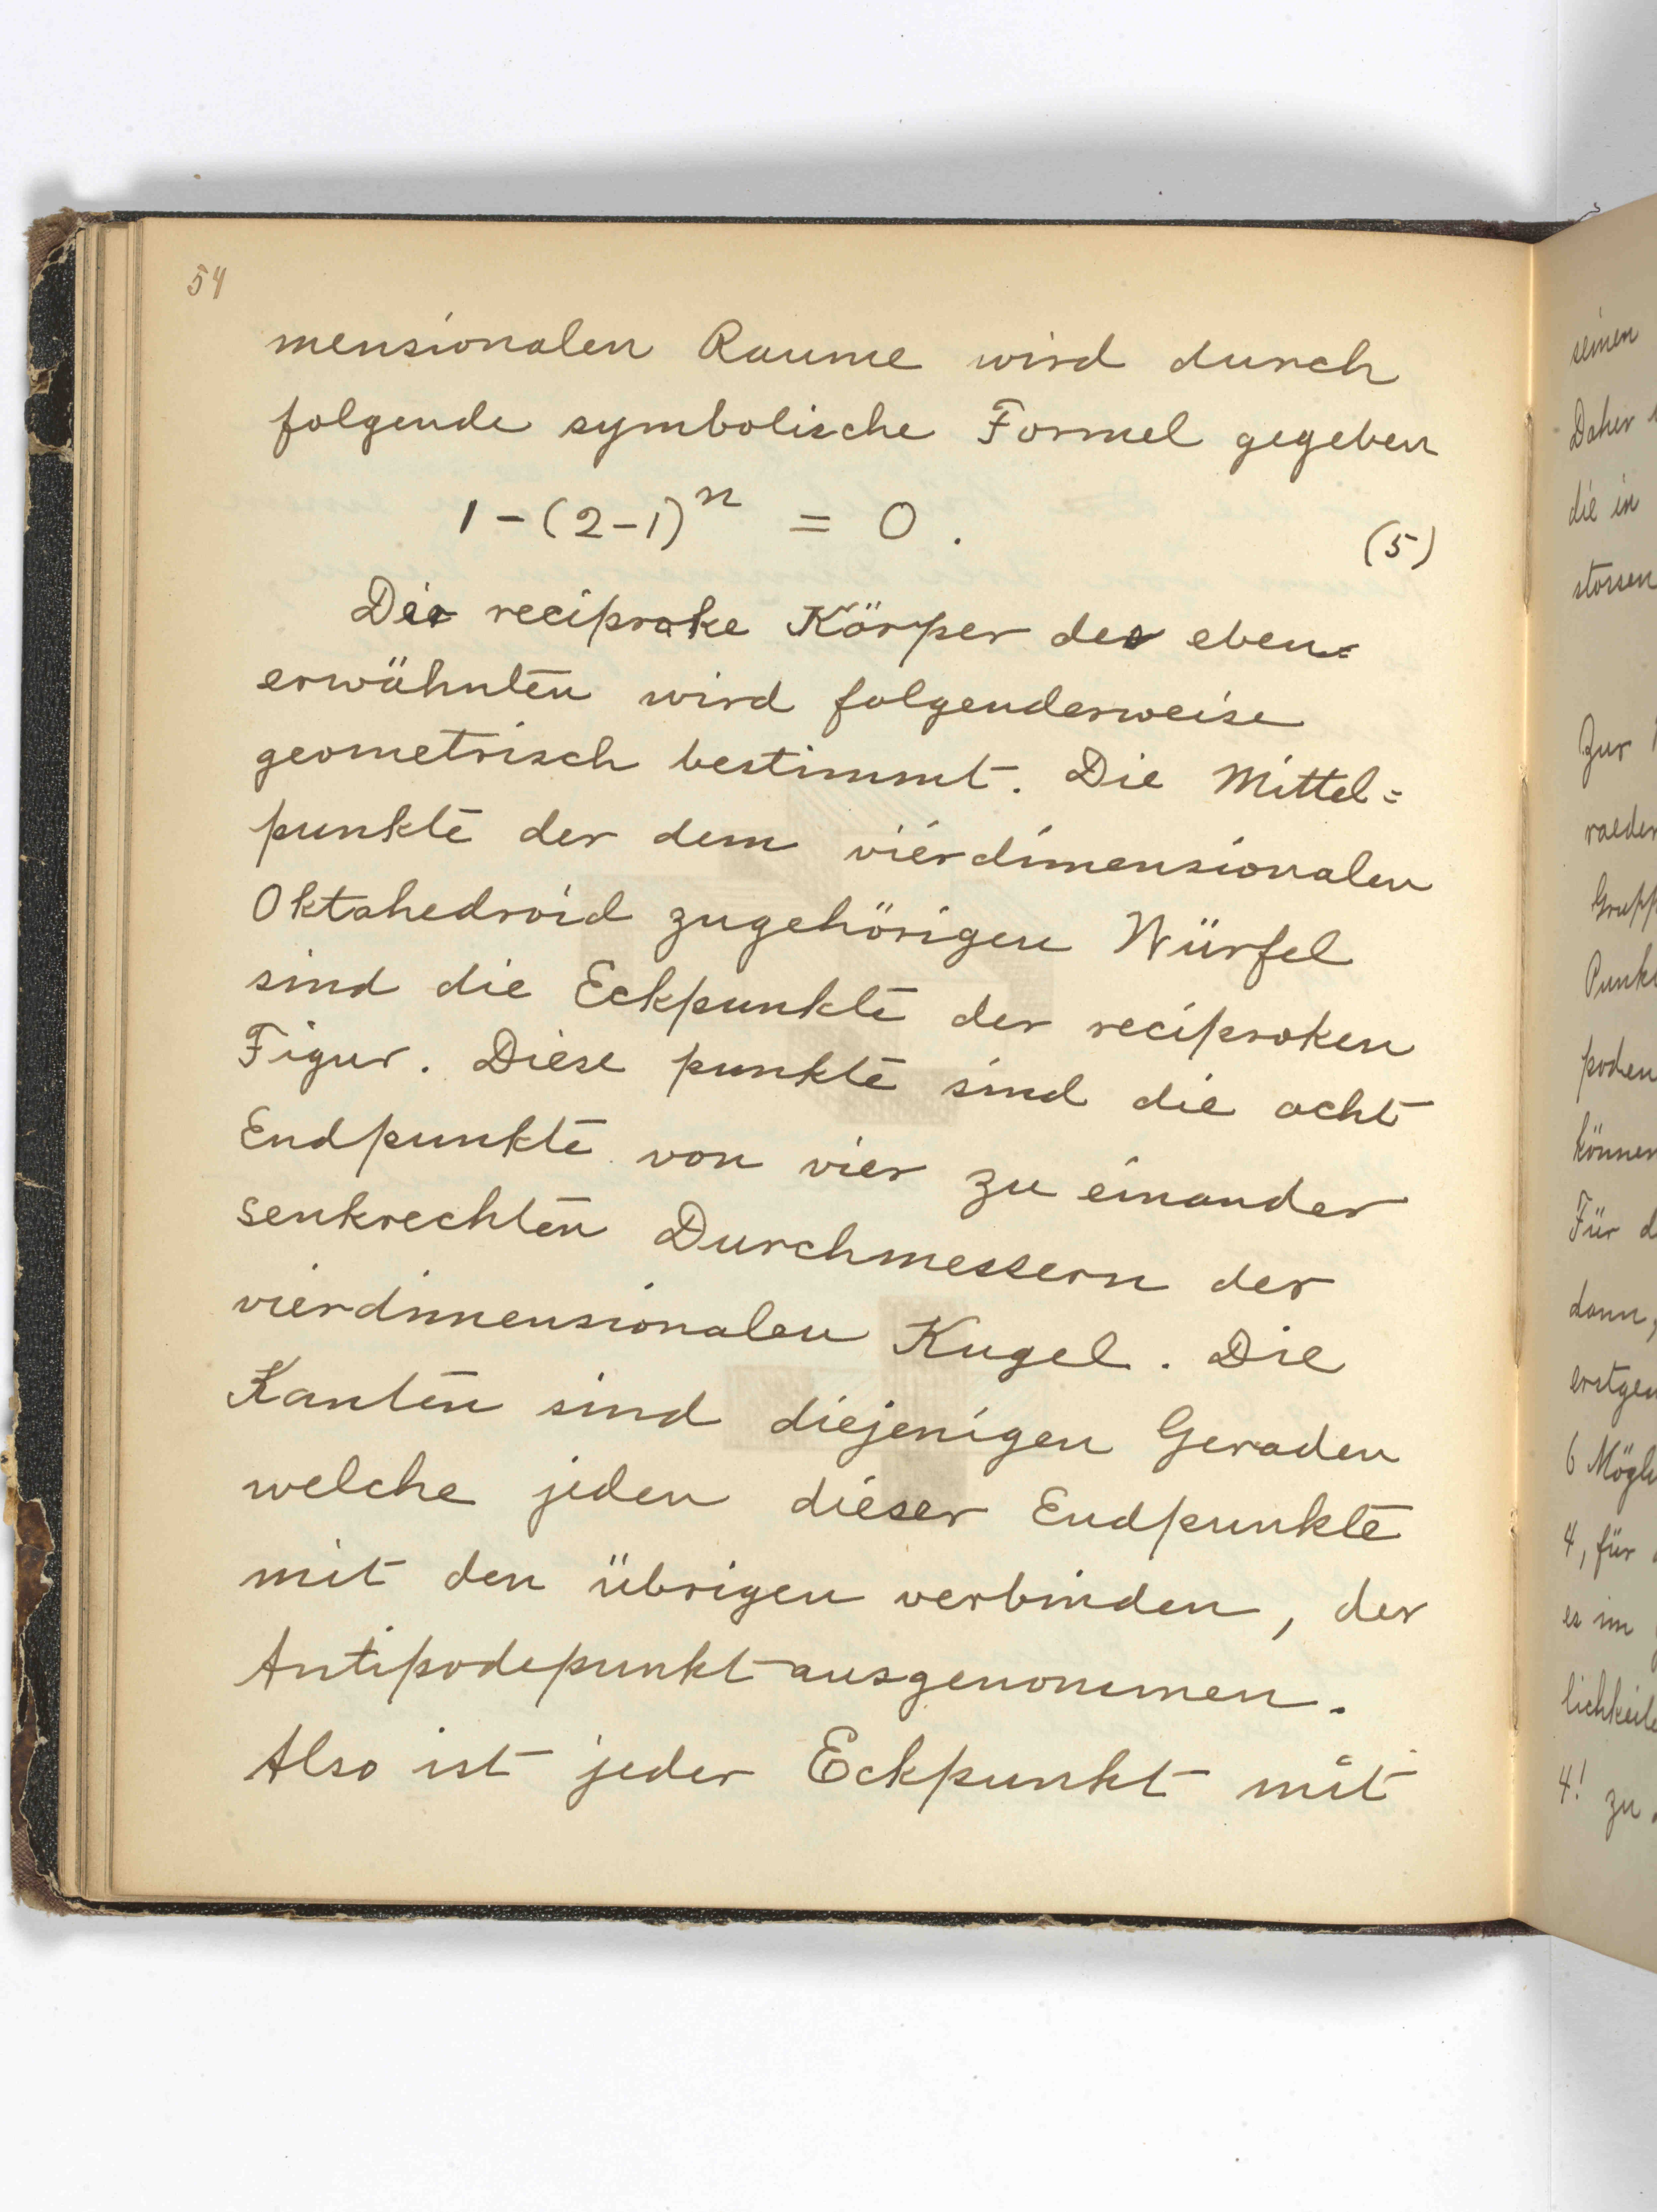 54
mensionalen Raume wird durch
folgende symbolische Formel gegeben
1-(2-1)ⁿ = 0. (5)
Der reciproke Körper des eben=
erwähnten wird folgenderweise
geometrisch bestimmt. Die Mittel=
punkte der dem vierdimensionalen
Oktahedroid zugehörigen Würfel
sind die Eckpunkte der reciproken
Figur. Diese punkte sind die acht
Endpunkte von vier zu einander
senkrechten Durchmessern der
vierdimensionalen Kugel. Die
Kanten sind diejenigen Geraden
welche jeden dieser Endpunkte
mit den übrigen verbinden, der
Antipodepunkt ausgenommen.
Also ist jeder Eckpunkt mit
seinen
Daher
die in
stossen
Zur
raeder
Grupp
Punkt
poden
können
Für d
dann,
erstgen
6 Mögli
4, für
es im
lichkeite
4! zu